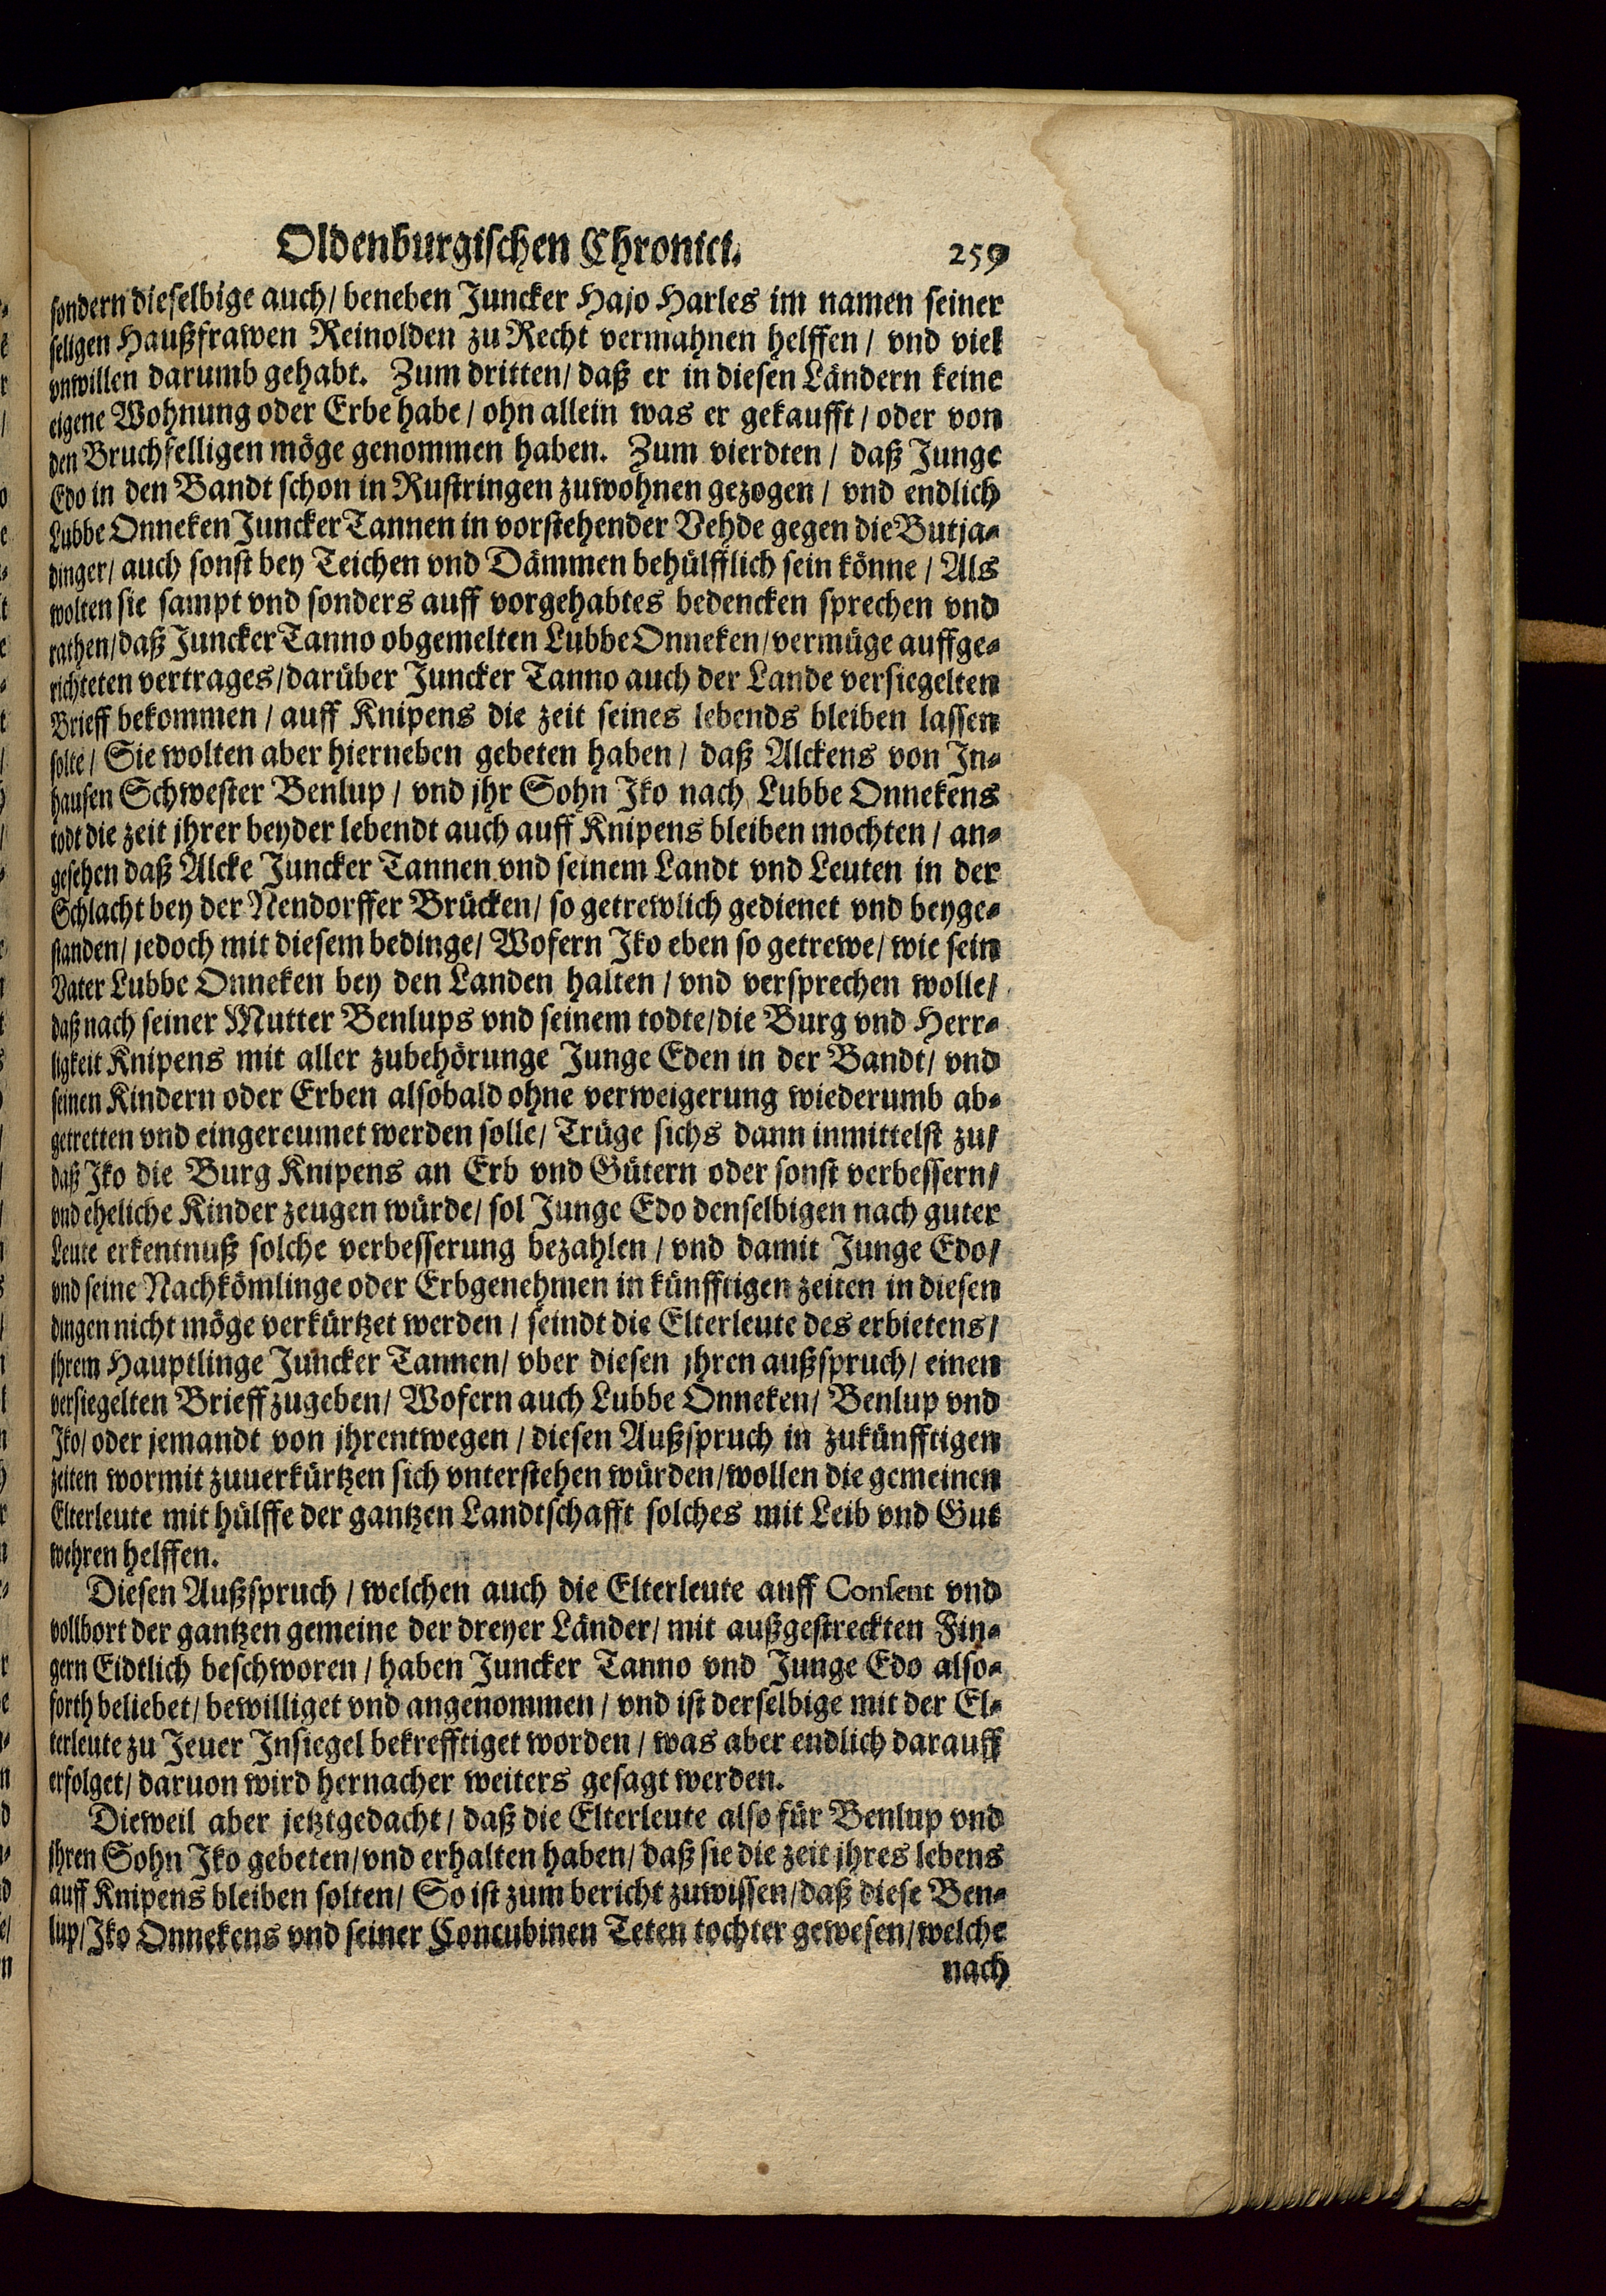 Oldenburgischen Chronici. 259
sondern dieselbige auch / beneben Juncker Hajo Harles im namen seiner
seligen Haußfrawen Reinolden zu Recht vermahnen helffen / vnd viel
vnwillen darumb gehabt. Zum dritten / daß er in diesen Ländern keine
eigene Wohnung oder Erbe habe / ohn allein was er gekaufft / oder von
den Bruchfelligen möge genommen haben. Zum vierdten / daß Junge
Edo in den Bandt schon in Rustringen zuwohnen gezogen / vnd endlich
Lubbe Onneken Juncker Tannen in vorstehender Vehde gegen die Butja-
dinger / auch sonst bey Teichen vnd Dämmen behülfflich sein könne / Als
wolten sie sampt vnd sonders auff vorgehabtes bedencken sprechen vnd
rathen / daß Juncker Tanno obgemelten Lubbe Onneken / vermüge auffge-
richteten vertrages / darüber Juncker Tanno auch der Lande versiegelten
Brieff bekommen / auff Knipens die zeit seines lebends bleiben lassen
solte / Sie wolten aber hierneben gebeten haben / daß Alckens von In-
hausen Schwester Benlup / vnd jhr Sohn Iko nach Lubbe Onnekens
todt die zeit jhrer beyder lebendt auch auff Knipens bleiben mochten / an-
gesehen daß Alcke Juncker Tannen vnd seinem Landt vnd Leuten in der
Schlacht bey der Nendorffer Brücken / so getrewlich gedienet vnd beyge-
standen / jedoch mit diesem bedinge / Wofern Iko eben so getrewe / wie sein
Vater Lubbe Onneken bey den Landen halten / vnd versprechen wolle /
daß nach seiner Mutter Benlups vnd seinem todte / die Burg vnd Herr-
ligkeit Knipens mit aller zubehörunge Junge Eden in der Bandt / vnd
seinen Kindern oder Erben alsobald ohne verweigerung wiederumb ab-
getretten vnd eingereumet werden solle / Trüge sichs dann inmittelst zu /
daß Iko die Burg Knipens an Erb vnd Gütern oder sonst verbessern /
vnd eheliche Kinder zeugen würde / sol Junge Edo denselbigen nach guter
Leute erkentnuß solche verbesserung bezahlen / vnd damit Junge Edo /
vnd seine Nachkömlinge oder Erbgenehmen in künfftigen zeiten in diesen
dingen nicht möge verkürtzet werden / seindt die Elterleute des erbietens /
jhrem Hauptlinge Juncker Tannen / vber diesen jhren außspruch / einen
versiegelten Brieff zugeben / Wofern auch Lubbe Onneken / Benlup vnd
Iko / oder jemandt von jhrentwegen / diesen Außspruch in zukünfftigen
zeiten wormit zuuerkürtzen sich vnterstehen würden / wollen die gemeinen
Elterleute mit hülffe der gantzen Landtschafft solches mit Leib vnd Gut
wehren helffen.
Diesen Außspruch / welchen auch die Elterleute auff Consent vnd
vollbort der gantzen gemeine der dreyer Länder / mit außgestreckten Fin-
gern Eidtlich beschworen / haben Juncker Tanno vnd Junge Edo also-
forth beliebet / bewilliget vnd angenommen / vnd ist derselbige mit der El-
terleute zu Jeuer Insiegel bekrefftiget worden / was aber endlich darauff
erfolget / daruon wird hernacher weiters gesagt werden.
Dieweil aber jetztgedacht / daß die Elterleute also für Benlup vnd
jhren Sohn Iko gebeten / vnd erhalten haben / daß sie die zeit jhres lebens
auff Knipens bleiben solten / So ist zum bericht zuwissen / daß diese Ben-
lup / Iko Onnekens vnd seiner Concubinen Teten tochter gewesen / welche
nach